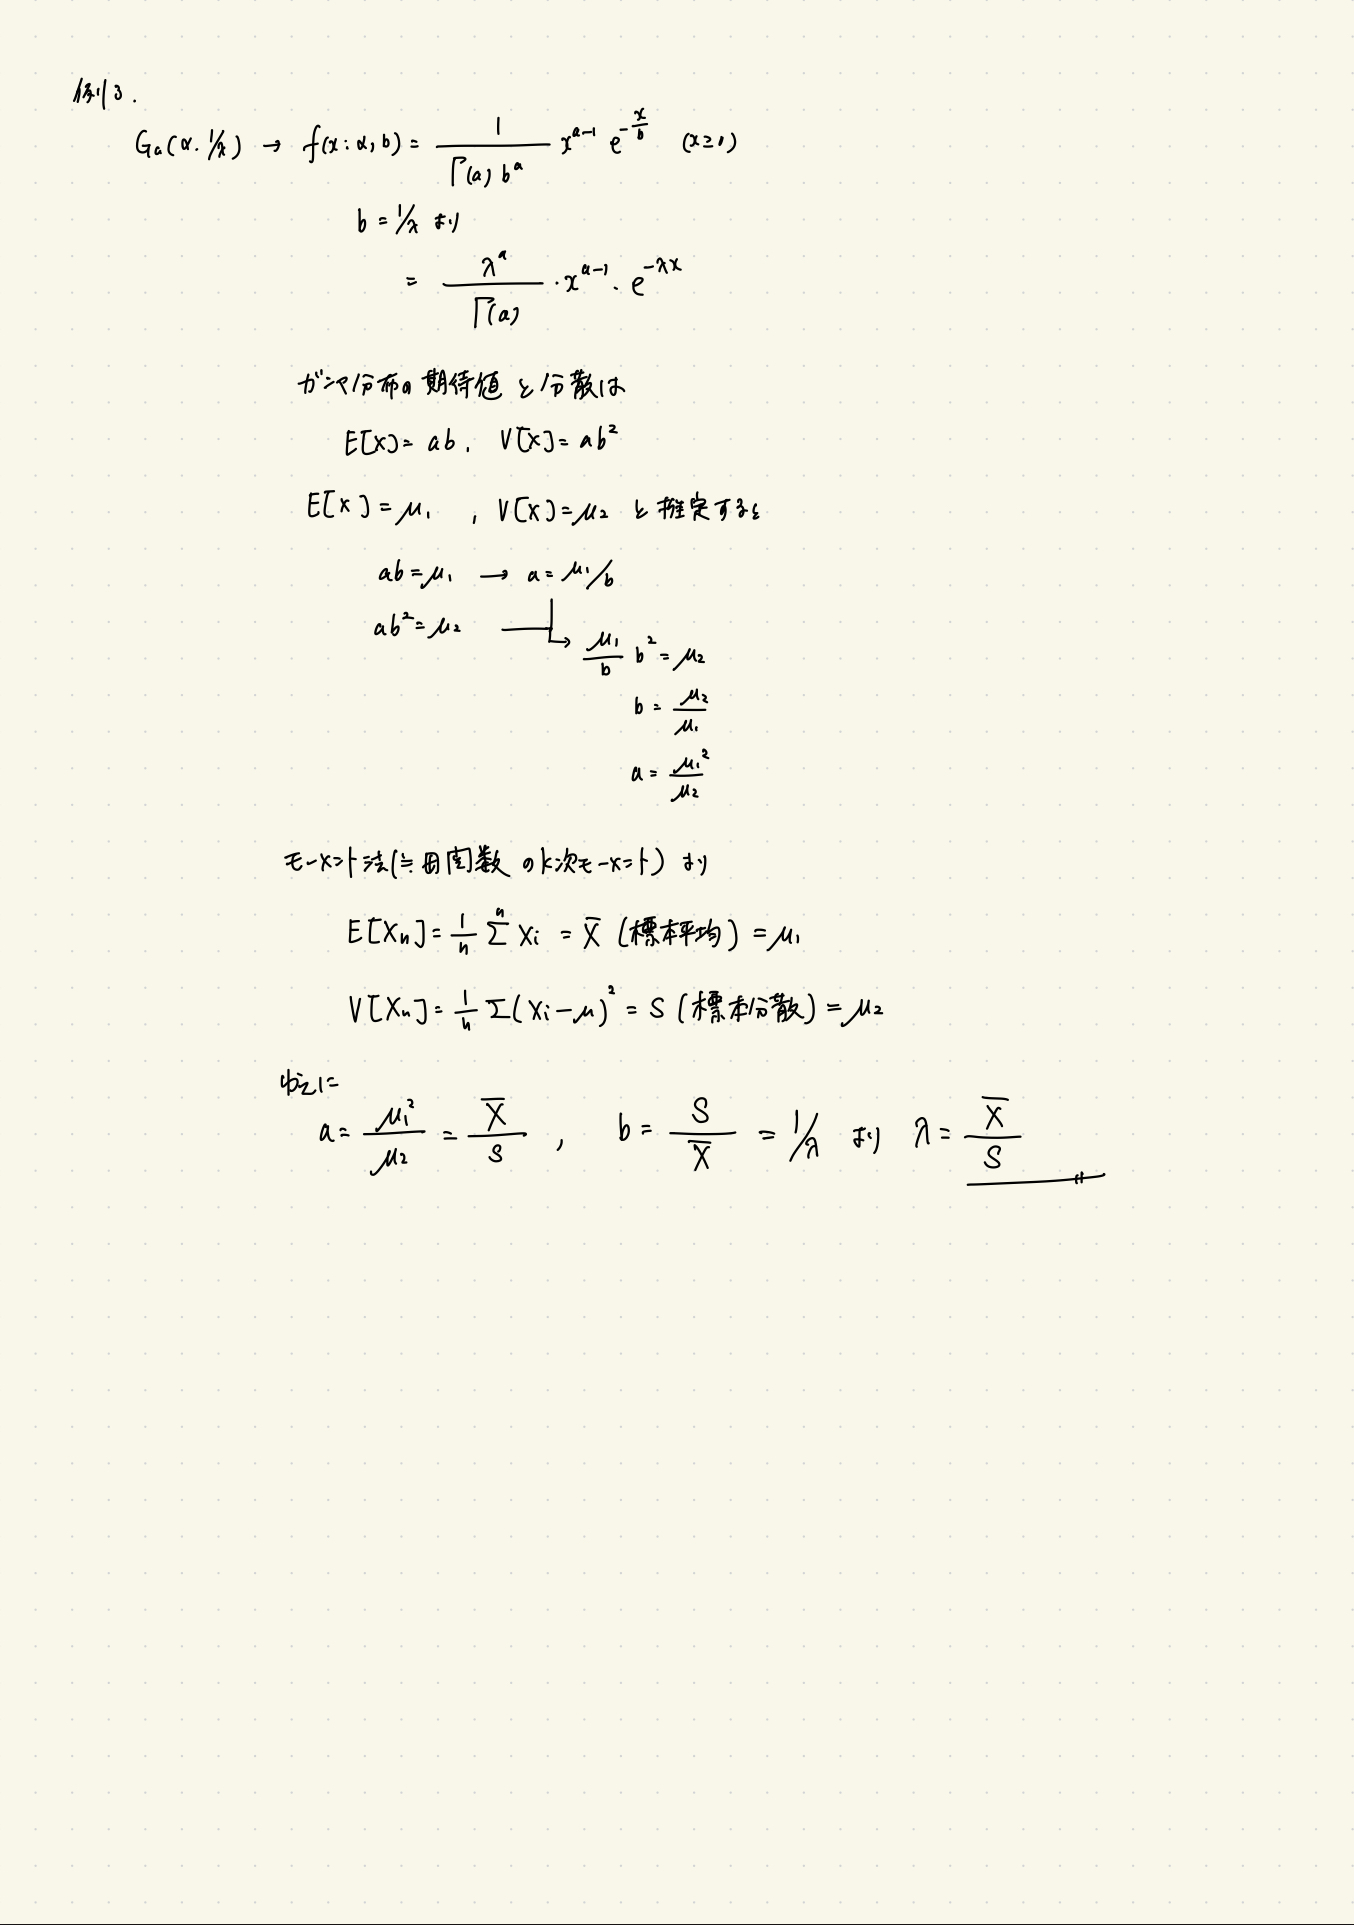 例3.
Ga(α. 1/λ) → f(x: α, b) = 1/(Γ(a) b^a) x^(a-1) e^(-x/b) (x≥0)
b = 1/λ より
= λ^a/Γ(a) · x^(a-1) · e^(-λx)
ガンマ分布の期待値と分散は
E[X] = ab, V[X] = ab²
E[X] = μ₁ , V[X] = μ₂ と推定すると
ab = μ₁ → a = μ₁/b
ab² = μ₂
μ₁/b b² = μ₂
b = μ₂/μ₁
a = μ₁²/μ₂
モーメント法(≒母関数のk次モーメント) より
E[Xn] = 1/n Σ^n Xi = X̄ (標本平均) = μ₁
V[Xn] = 1/n Σ(Xi-μ)² = S (標本分散) = μ₂
ゆえに
a = μ₁²/μ₂ = X̄/S , b = S/X̄ = 1/λ より λ = X̄/S